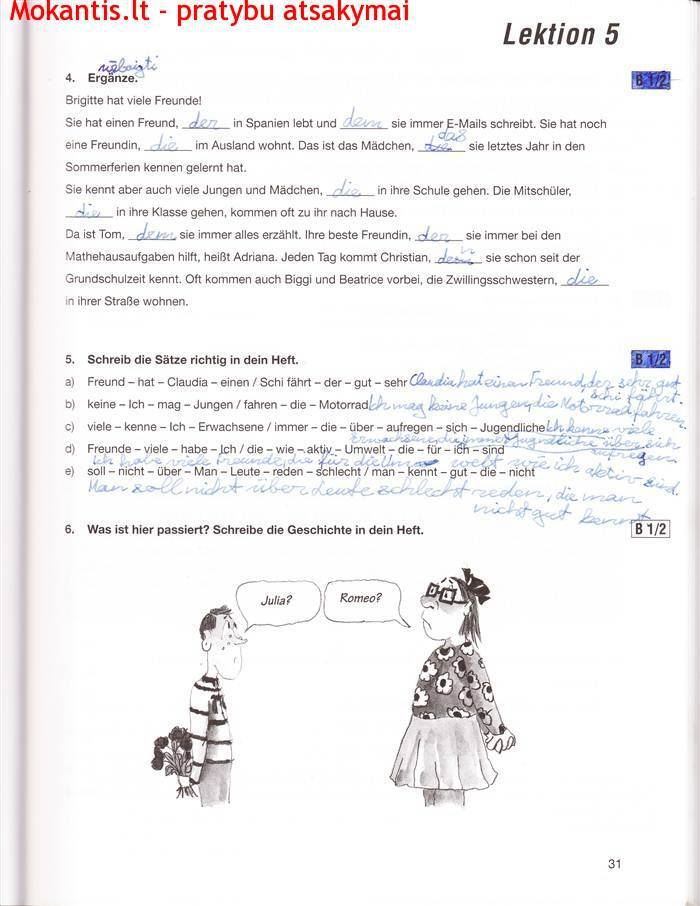 Mokantis.lt - pratybu atsakymai
Lektion 5
4. Ergänze.
B 1/2
Brigitte hat viele Freunde!
Sie hat einen Freund, der in Spanien lebt und dem sie immer E-Mails schreibt. Sie hat noch
eine Freundin, die im Ausland wohnt. Das ist das Mädchen, das sie letztes Jahr in den
Sommerferien kennen gelernt hat.
Sie kennt aber auch viele Jungen und Mädchen, die in ihre Schule gehen. Die Mitschüler,
die in ihre Klasse gehen, kommen oft zu ihr nach Hause.
Da ist Tom, dem sie immer alles erzählt. Ihre beste Freundin, der sie immer bei den
Mathehausaufgaben hilft, heißt Adriana. Jeden Tag kommt Christian, den sie schon seit der
Grundschulzeit kennt. Oft kommen auch Biggi und Beatrice vorbei, die Zwillingsschwestern, die
in ihrer Straße wohnen.
5. Schreib die Sätze richtig in dein Heft.
B 1/2
a) Freund – hat – Claudia – einen / Schi fährt – der – gut – sehr Claudia hat einen Freund, der sehr gut
Schi fährt.
b) keine – Ich – mag – Jungen / fahren – die – Motorrad Ich mag keine Jungen, die Motorrad fahren.
c) viele – kenne – Ich – Erwachsene / immer – die – über – aufregen – sich – Jugendliche Ich kenne viele
Erwachsene, die immer Jugendliche über sich
aufregen
d) Freunde – viele – habe – Ich / die – wie – aktiv – Umwelt – die – für – ich – sind
ich habe viele Freunde, die für die Umwelt wie ich aktiv sind.
e) soll – nicht – über – Man – Leute – reden – schlecht / man – kennt – gut – die – nicht
Man soll nicht über Leute schlecht reden, die man
nicht gut kennt
6. Was ist hier passiert? Schreibe die Geschichte in dein Heft.
B 1/2
Julia?
Romeo?
31